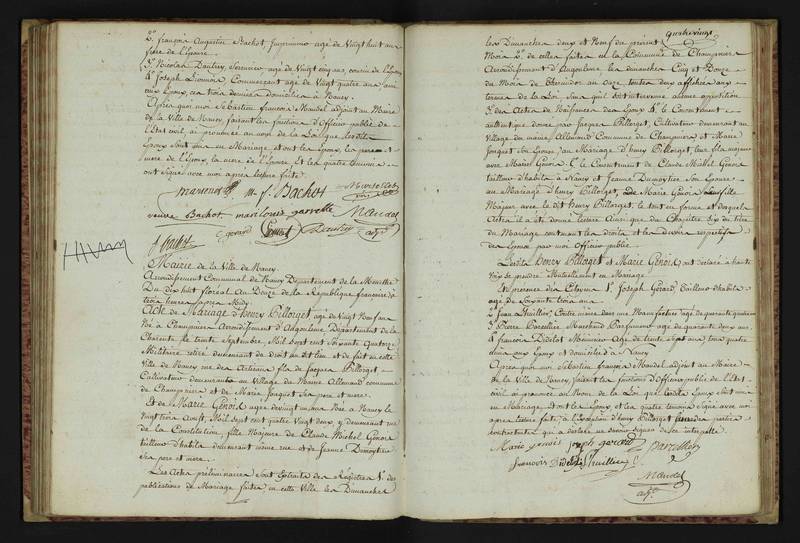 2°. françois Augustin Bachot Imprimeur agé de Vingt huit ans
frere de l'épouse.
3°. Nicolas Dautrey, Serrurier agé de vingt cinq ans, cousin de l'épouse
4°. Joseph Commerçant agé de Vingt quatre ans, ami
des Epoux, ces trois derniers domiciliés à Nancy.
Après quoi moi Sebastien françois Mandel adjoint au Maire
de la Ville de Nancy, faisant les fonctions d'Officier public de
l'Etat civil, ai prononcé au nom de la Loi que lesdits
Epoux sont unis en Mariage et ont les Epoux, les pere et
mere de l'Epoux, la mere de l'Epouse et les quatre témoins
signé avec moi après lecture faite.
m. f. Bachot
veuve Bachot marlouis garrette Mandel
gerard Dautrey adj.
f. Bachot
Mairie de la Ville de Nancy
Arrondissement Communal de Nancy Département de la Meurthe
Du dix huit floréal An Douze de la République française à
trois heures après Midy
Acte de Mariage d'henry Billorget, agé de vingt Neuf ans
Né à Champniers Arrondissement d'Angouleme Département de la
Charente le trente Septembre Mil Sept cent Soixante Quatorze
Militaire retiré demeurant de droit au dit lieu et de fait en cette
Ville de Nancy rue des Artisans fils de Jacques Billorget
Cultivateur demeurants au Village du Maine Allemand commune
de Champniers et de Marie Jonquet ses pere et mere.
Et de Marie Génois agée de vingt un ans Née à Nancy le
vingt trois Aout, Mil sept cent quatre Vingt deux y demeurant rue
de la Constitution, fille Majeure de Claude Michel Génois
tailleur d'habits demeurant même rue et de Jeanne Demoytier
ses pere et mere.
Les Actes préliminaires sont Extraits des Registres 1°. des
publications de Mariage faites en cette Ville les Dimanches
quatre vingt
les Dimanches deux et Neuf du présent
Mois 2°. de celles faites en la Commune de Champniers
Arrondissement d'Angouleme les dimanches Cinq et Douze
du Mois de au onze toutes deux affichées aux
termes de la Loi sans qu'il soit intervenu aucune opposition
3°. des Actes de Naissances des Epoux 4°. le Consentement
authentique donné par Jacques Billorget, Cultivateur demeurant au
Village du maine Allemand Commune de Champniers et Marie
Jonquet son Epouse, au Mariage d'henry Billorget, leur fils majeur
avec Marie Génois 5°. le Consentement de Claude Michel Génois
tailleur d'habits à Nancy et Jeanne Demoytier son Epouse
au Mariage de Marie Génois leur fille
Majeure avec le dit henry Billorget, le tout en forme et desquels
Actes il a été donné lecture Ainsi que du Chapitre Six du titre
du Mariage contenant les droits et les devoirs respectifs
des Epoux par moi Officier public
Lesdits henry Billorget et Marie Génois, ont déclaré à haute
Voix se prendre Mutuellement en Mariage
En présence des Citoyens 1°. Joseph Gérard, Tailleur d'habits
agé de soixante trois ans
2°. Jean Lhuillier, Contre maitre dans une Manufacture agé de quarante quatre ans
3°. Pierre Parcellier Marchand Parfumeur agé de quarante deux ans
4°. françois Didelot Menuisier Agé de trente sept ans tous quatre
amis des Epoux et domiciliés à Nancy
Après quoi moi Sebastien françois Mandel adjoint au Maire
de la Ville de Nancy, faisant les fonctions d'Officier public de l'Etat
civil, ai prononcé au Nom de la Loi que lesdits Epoux sont unis
en Mariage et ont les Epoux et les quatre témoins signé avec moi
après lecture faite, à l'exception d'henry Billorget
contractant qui a déclaré ne savoir signer de ce interpellé.
Marie genois joseph gerard parcellier
francois Didelot Lhuillier
Mandel
adj.